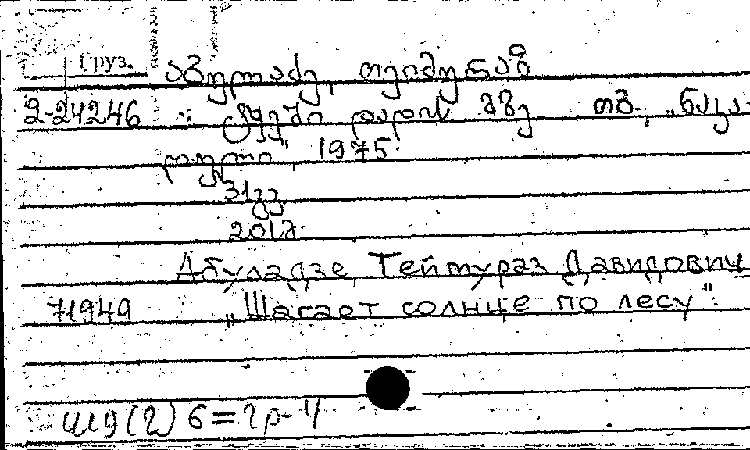 Груз.
აბულაძე, თეიმურაზ
2-24246 ტყეში დადის მზე თბ., „ნაკა
დული“, 1975.
31გვ
20175
Абуладзе, Теймураз Давидович
71949 „Шагает солнце по лесу".